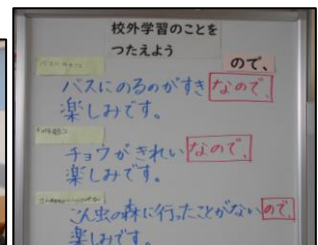 校外学習のことを
つたえよう
ので、
バスにのるのがすきなので、
楽しみです。
チョウがきれいなので、
楽しみです。
こん虫の森に行ったことがないので、
楽しみです。